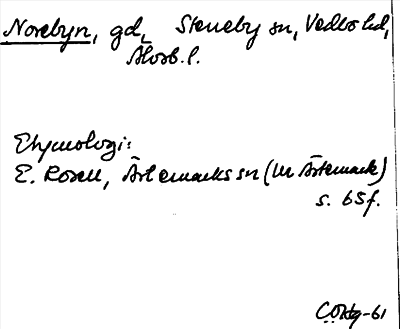 Norebyn, gd, Steneby sn, Vedbo hd,
Älvsb. l.
Etymologi:
E. Rosell, Ärtemarks sn (ur Ärtemark)
s. 65f.
-61